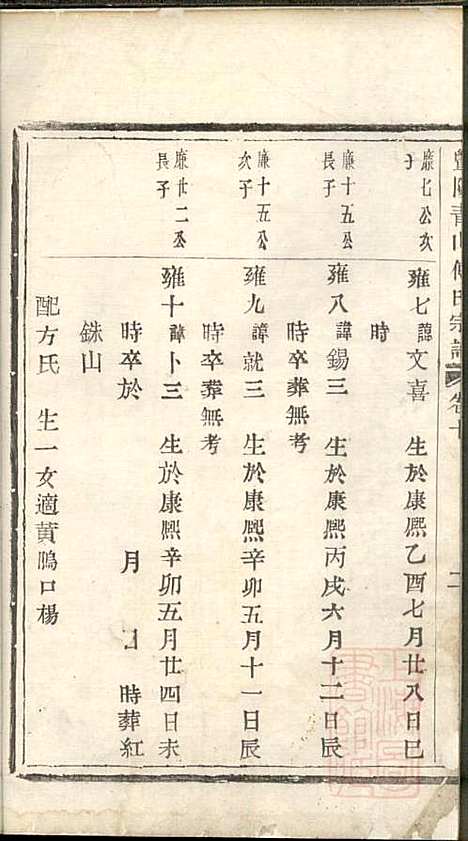 暨陽青山傅氏宗譜 卷十 二
廉七公次子
雍七 諱文喜 生於康熙乙酉七月廿八日巳
時
廉十五公長子
雍八 諱錫三 生於康熙丙戌六月十二日辰
時卒葬無考
廉十五公次子
雍九 諱就三 生於康熙辛卯五月十一日辰
時卒葬無考
廉廿二公長子
雍十 諱卜三 生於康熙辛卯五月廿四日未
時卒於 月 日 時葬紅
銖山
配方氏 生一女適黃鵬口楊